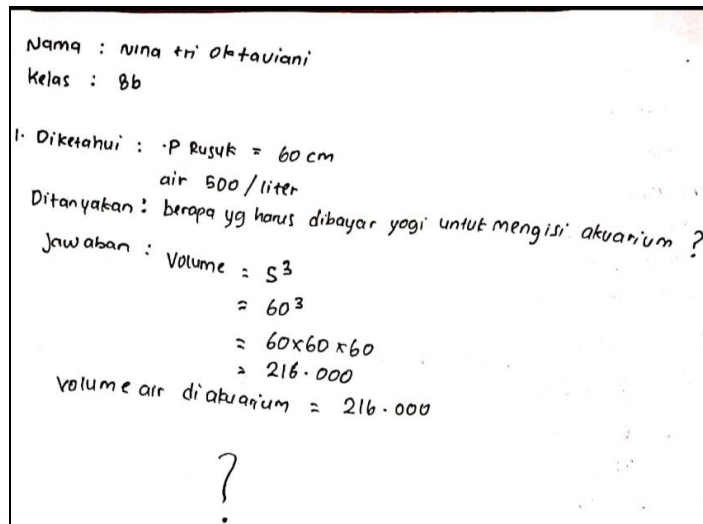 Nama : Nina tri Oktaviani
Kelas : 8b
1. Diketahui : · P Rusuk = 60 cm
air 500 / liter
Ditanyakan : berapa yg harus dibayar yogi untuk mengisi akuarium ?
Jawaban : Volume = S³
= 60³
= 60x60x60
= 216.000
Volume air diakuarium = 216.000
?